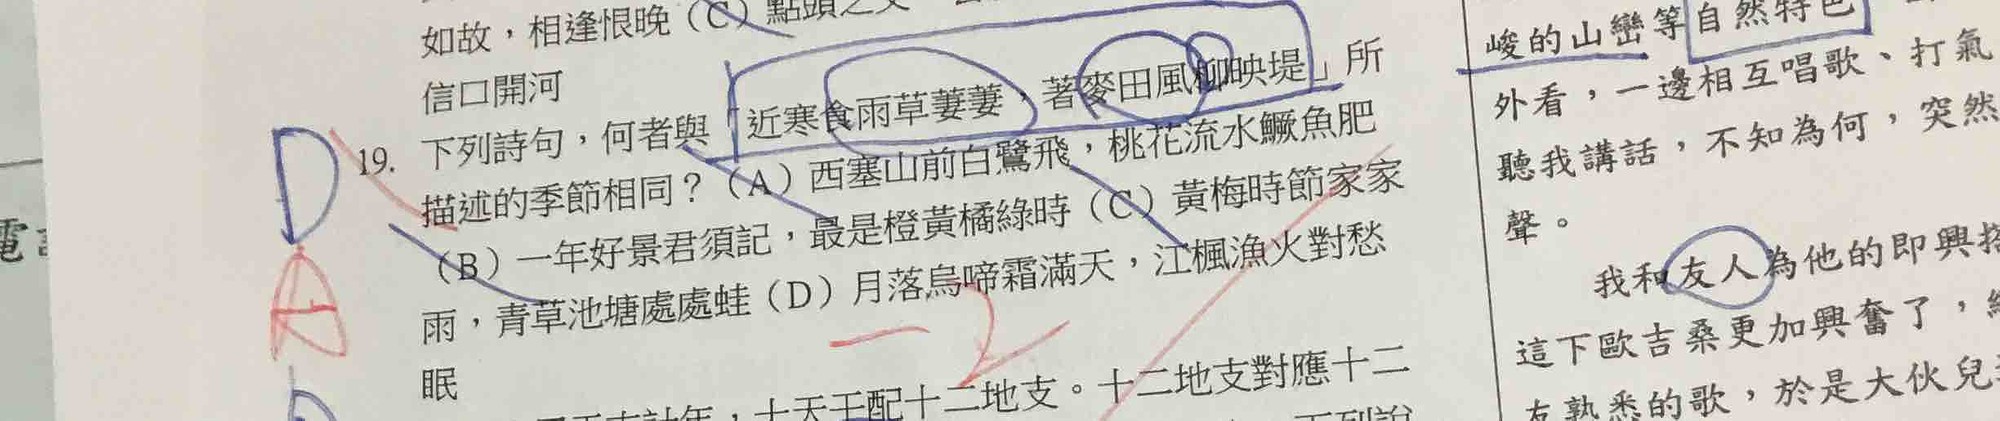 如故，相逢恨晚（C）點頭之交
信口開河
19. 下列詩句，何者與「近寒食雨草萋萋，著麥田風柳映堤」所
描述的季節相同？（A）西塞山前白鷺飛，桃花流水鱖魚肥
（B）一年好景君須記，最是橙黃橘綠時（C）黃梅時節家家
雨，青草池塘處處蛙（D）月落烏啼霜滿天，江楓漁火對愁
眠
，十天干配十二地支。十二地支對應十二
D
A
-2
電
峻的山巒等自然特色
外看，一邊相互唱歌、打氣
聽我講話，不知為何，突然
聲。
我和友人為他的即興
這下歐吉桑更加興奮了，
友熟悉的歌，於是大伙兒